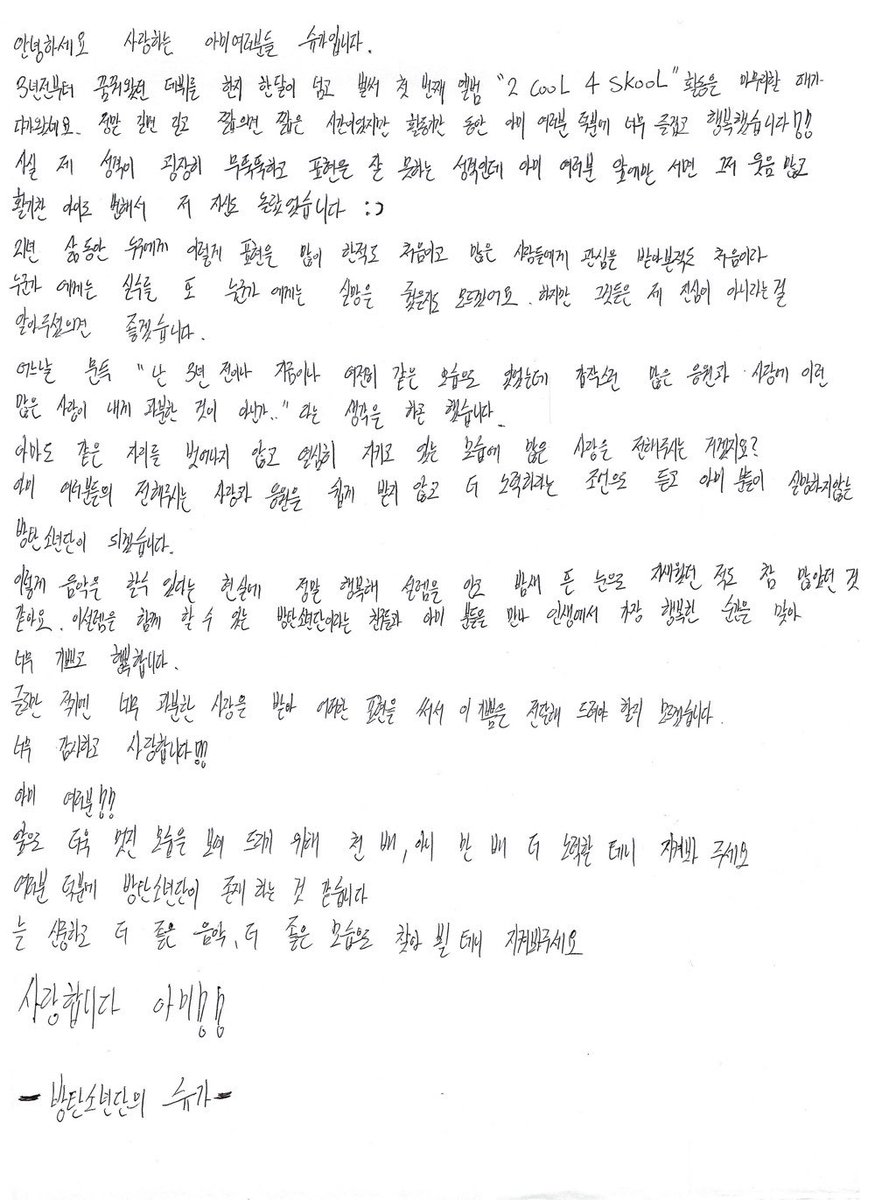 안녕하세요 사랑하는 아미여러분들 슈가입니다.
3년전부터 꿈꿔왔던 데뷔를 한지 한달이 넘고 벌써 첫 번째 앨범 "2 COOL 4 SKOOL" 활동을 마무리할 때가
다가왔네요. 정말 길면 길고 짧으면 짧은 시간이었지만 활동기간 동안 아미 여러분 덕분에 너무 즐겁고 행복했습니다!!
사실 제 성격이 굉장히 무뚝뚝하고 표현을 잘 못하는 성격인데 아미 여러분 앞에만 서면 그저 웃음 많고
활기찬 아이로 변해서 저 자신도 놀랐었습니다 :)
21년 삶동안 누구에게 이렇게 표현을 많이 한적도 처음이고 많은 사람들에게 관심을 받아본적도 처음이라
누군가 에게는 실수를 또 누군가 에게는 실망을 줬을지도 모르겠어요. 하지만 그것들은 제 진심이 아니라는걸
알아주셨으면 좋겠습니다.
어느날 문득 "난 3년 전이나 지금이나 여전히 같은 모습으로 있었는데 갑작스런 많은 응원과 사랑에 이런
많은 사랑이 내게 과분한 것이 아닌가.." 라는 생각을 하곤 했습니다.
아마도 같은 자리를 벗어나지 않고 열심히 지키고 있는 모습에 많은 사랑을 전해주시는 거겠지요?
아미 여러분들의 전해주시는 사랑과 응원을 쉽게 받지 않고 더 노력하라는 조언으로 듣고 아미 분들이 실망하지않는
방탄소년단이 되겠습니다.
이렇게 음악을 할수 있다는 현실에 정말 행복해 설렘을 안고 밤새 뜬 눈으로 지새웠던 적도 참 많았던 것
같아요. 이설렘을 함께 할 수 있는 방탄소년단이라는 친구들과 아미 분들을 만나 인생에서 가장 행복한 순간을 맞아
너무 기쁘고 행복합니다.
글로만 적기엔 너무 과분한 사랑을 받아 어떠한 표현을 써서 이 기쁨을 전달해 드려야 할지 모르겠습니다.
너무 감사하고 사랑합니다!!
아미 여러분!!
앞으로 더욱 멋진 모습을 보여 드리기 위해 천 배, 아니 만 배 더 노력할 테니 지켜봐 주세요
여러분 덕분에 방탄소년단이 존재 하는 것 같습니다
늘 신중하고 더 좋은 음악, 더 좋은 모습으로 찾아 뵐 테니 지켜봐주세요
사랑합니다 아미!!
- 방탄소년단의 슈가 -